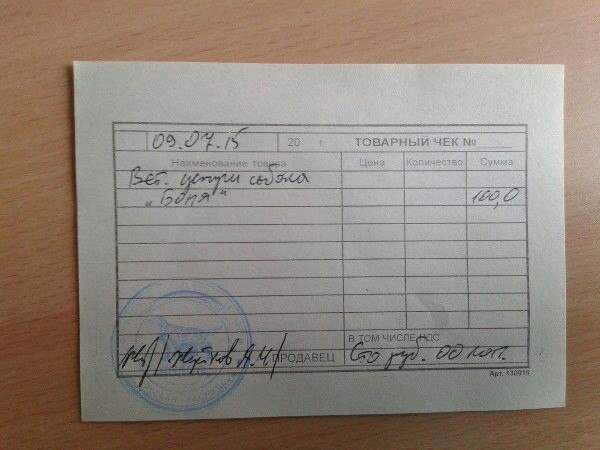 09.07.15 20 г. ТОВАРНЫЙ ЧЕК №
Наименование товара Цена Количество Сумма
Вет. услуги собака
„Боня“ 100,0
В ТОМ ЧИСЛЕ НДС
А.И. ПРОДАВЕЦ Сто руб. 00 коп.
Арт. 130015